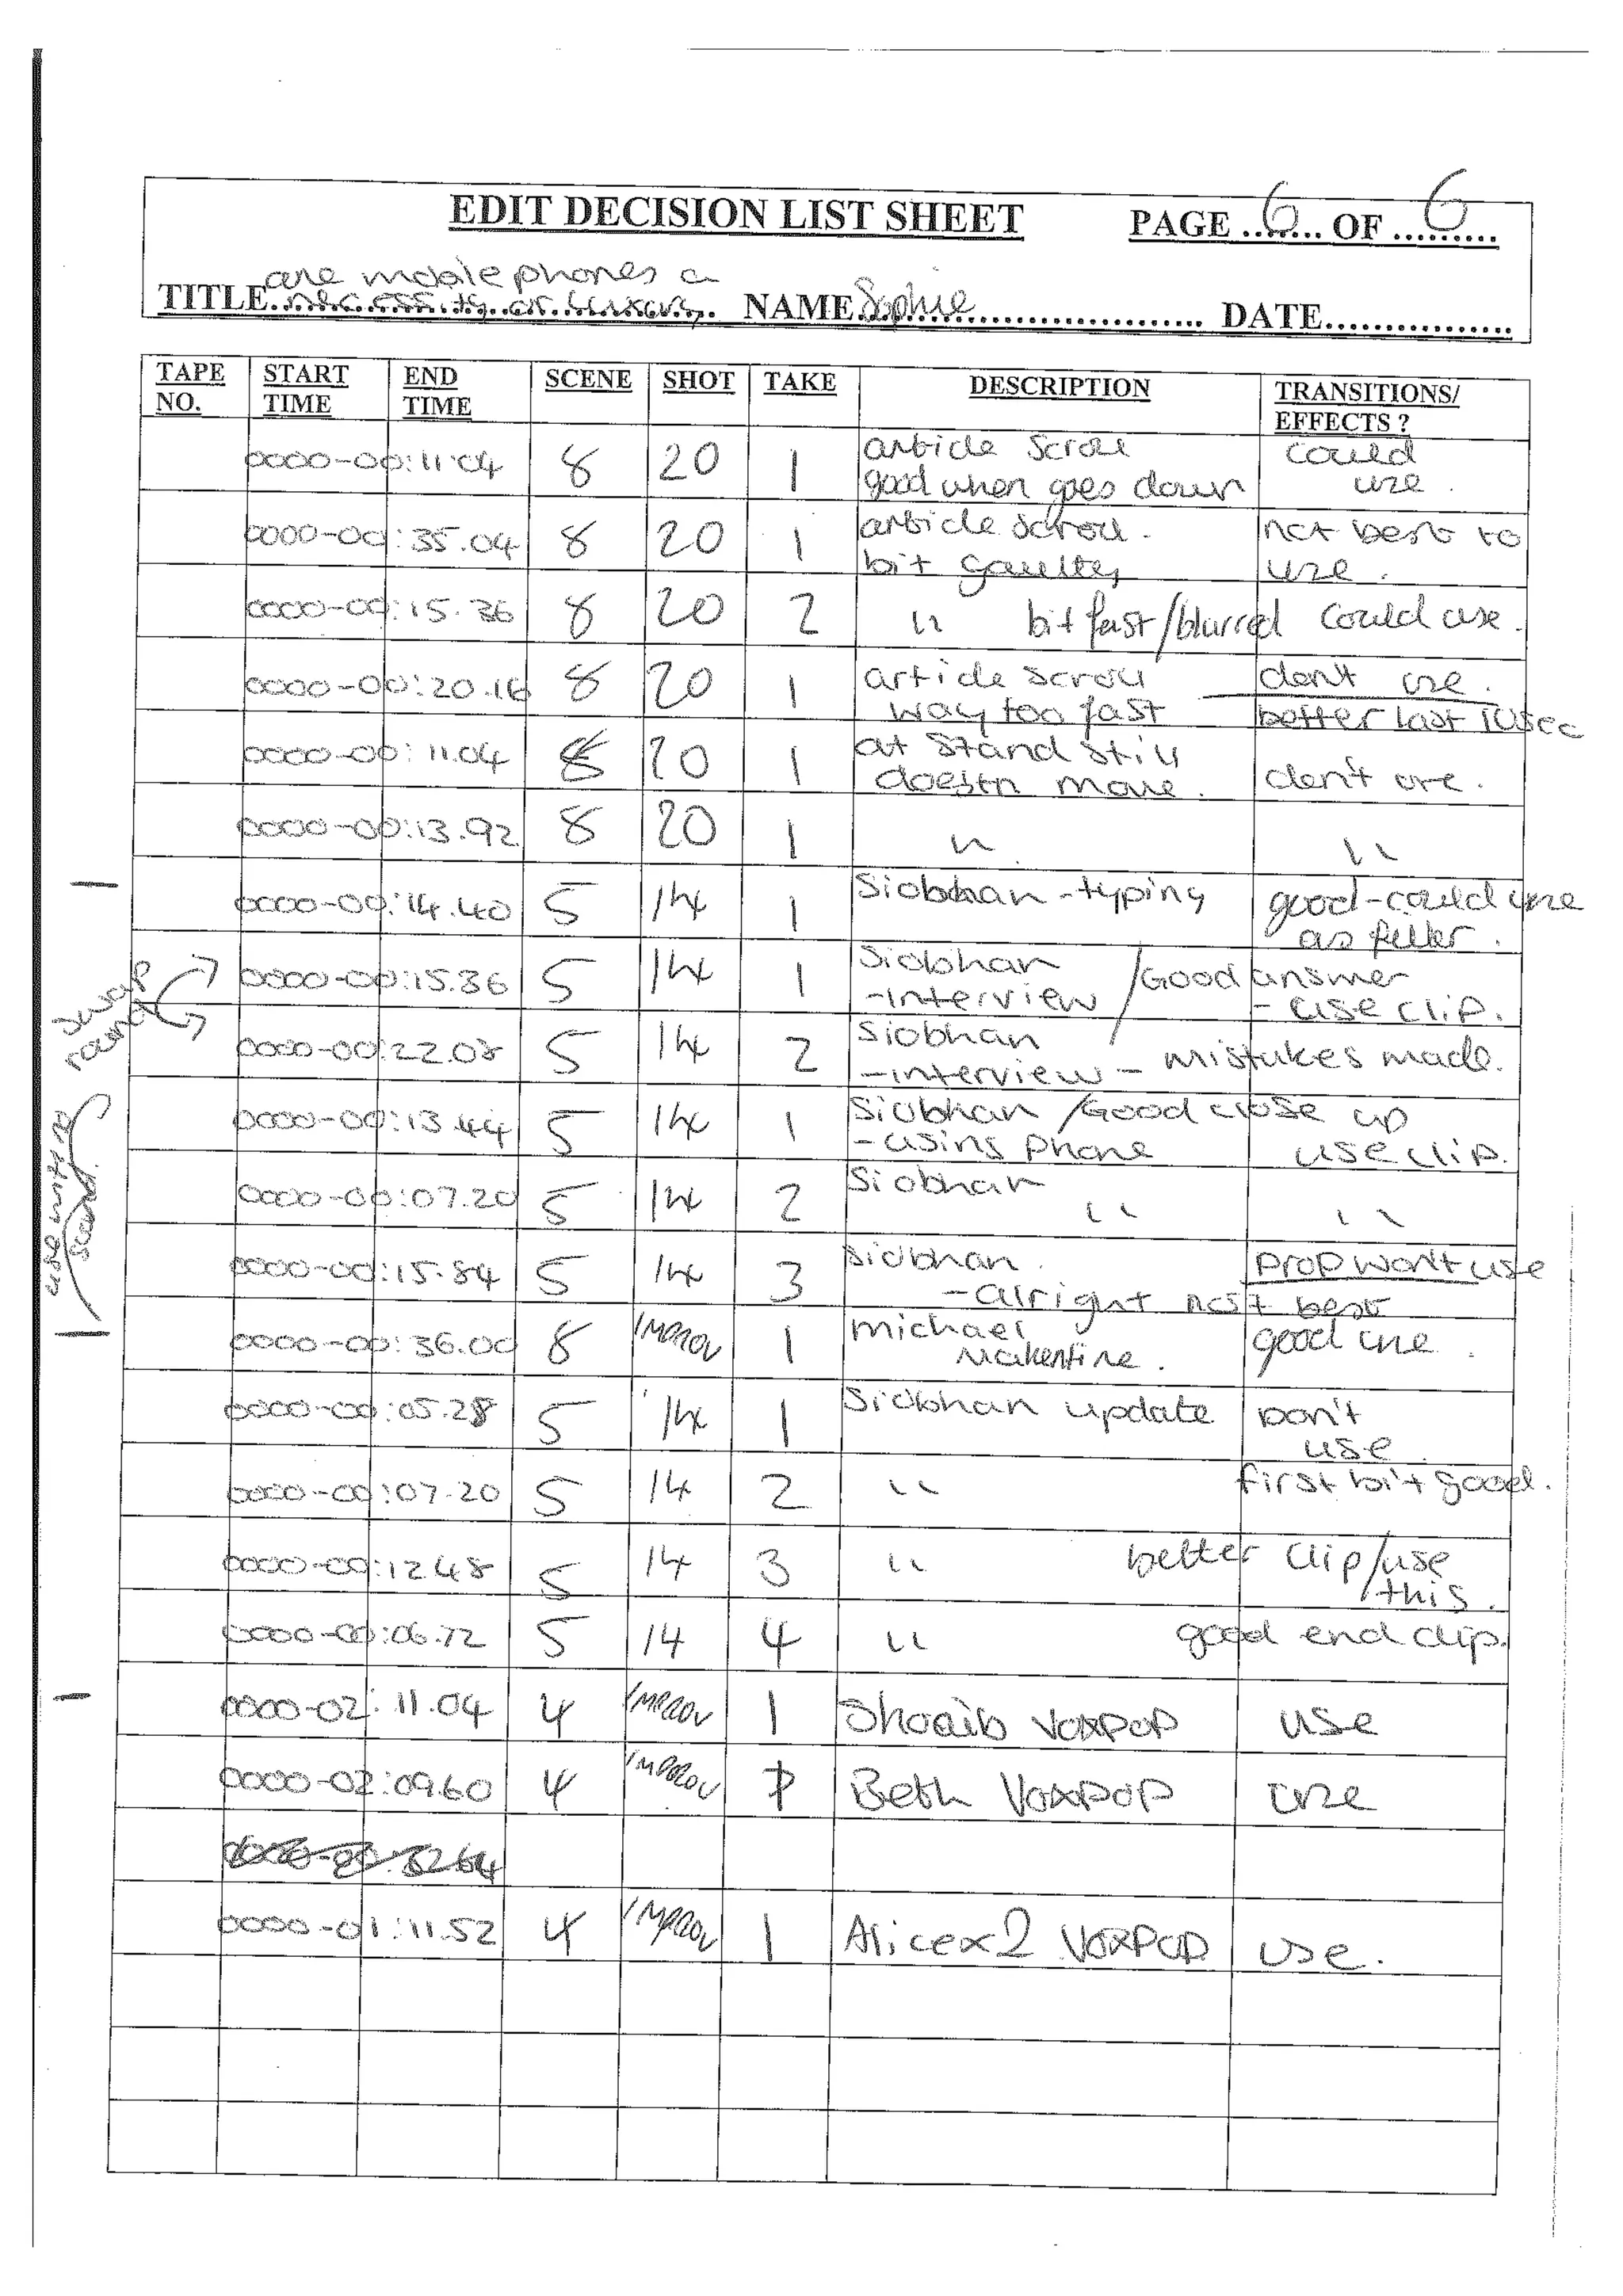 EDIT DECISION LIST SHEET PAGE 6 OF 6
are mobile phones a
TITLE necessity or luxury. NAME Sophie DATE
TAPE NO. START TIME END TIME SCENE SHOT TAKE DESCRIPTION TRANSITIONS/ EFFECTS ?
0000-00:11.04 8 20 1 article scroll good when goes down could use.
0000-00:35.04 8 20 1 article scroll. bit gaulty not best to use.
0000-00:15.36 8 20 2 " bit fast/blurred could use.
0000-00:20.16 8 20 1 article scroll way too fast dont use. better last 10sec
0000-00:11.04 8 20 1 at stand still doestn move. don't use.
0000-00:13.92 8 20 1 " "
0000-00:14.40 5 14 1 Siobhan - typing good-could use as filler.
swap round
0000-00:15.36 5 14 1 Siobhan -interview /Good answer - use clip.
0000-00:22.08 5 14 2 Siobhan -interview - mistukes made.
use with no sound.
0000-00:13.44 5 14 1 Siobhan /Good close up -using phone use clip.
0000-00:07.20 5 14 2 Siobhan " "
0000-00:15.84 5 14 3 Siobhan. -alright not best prop won't use
0000-00:36.00 8 IMPROV 1 michael good use.
0000-00:05.28 5 14 1 Siobhan update Don't use.
0000-00:07.20 5 14 2 " first bit good.
0000-00:12.48 5 14 3 " better clip/use this.
0000-00:06.72 5 14 4 " good end clip.
0000-02:11.04 4 IMPROV 1 Shoaib voxpop use
0000-02:09.60 4 IMPROV 1 Beth Voxpop use
0000-01:11.52 4 IMPROV 1 Alicex2 VOXPOP use.